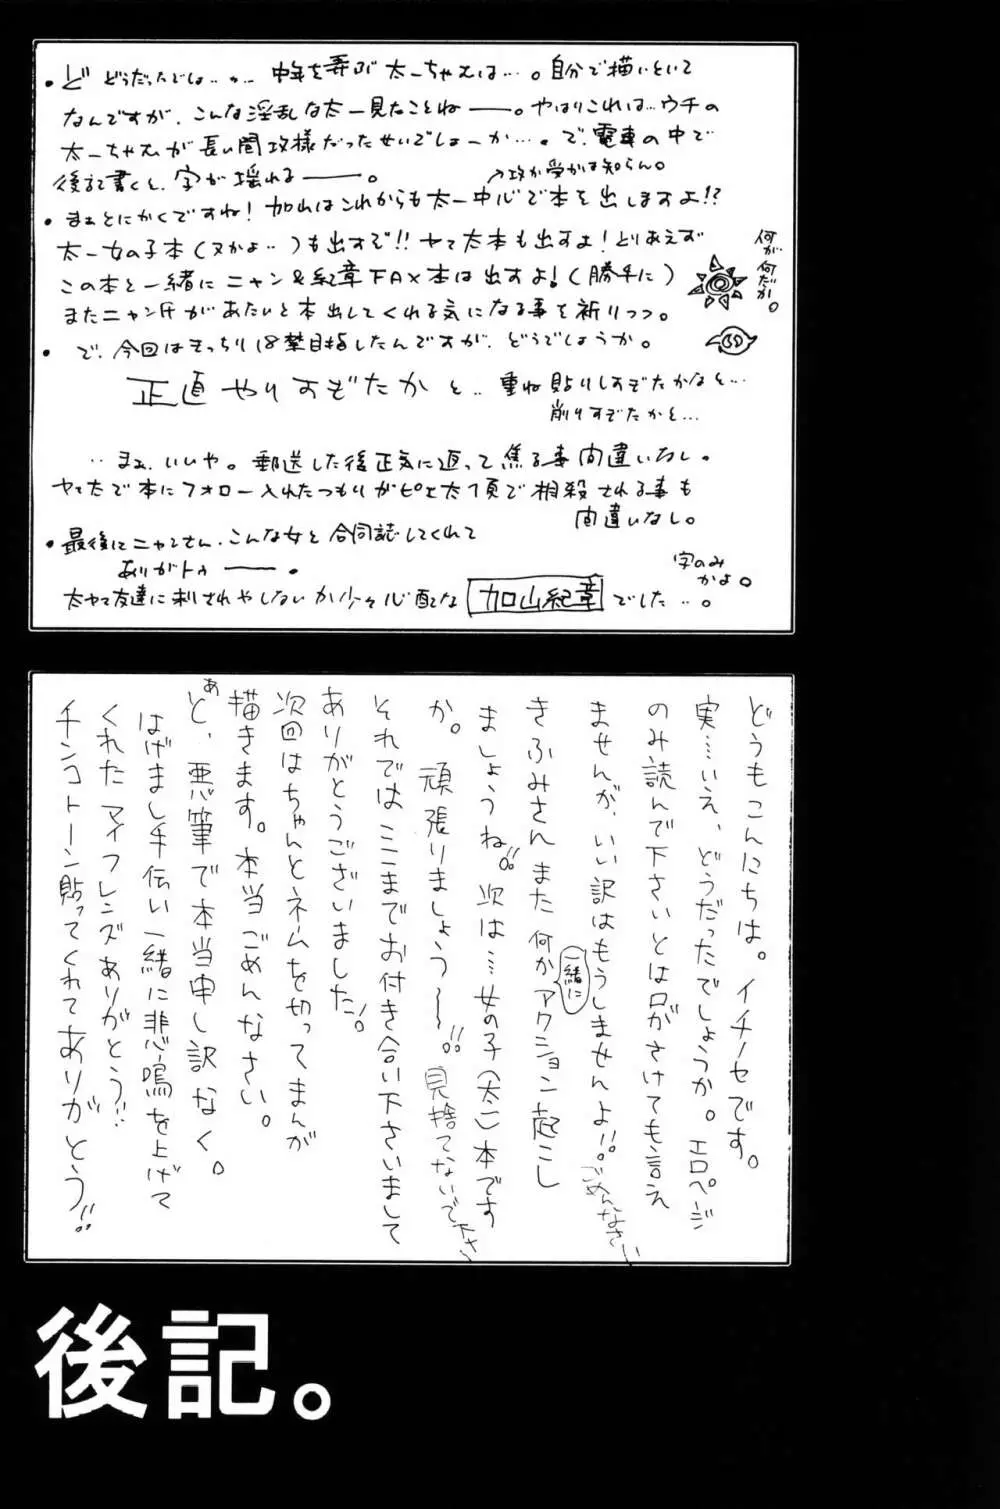 ・ど どうだったでしょ…、… 中年を弄ぶ 太一ちゃんは…。自分で描いといて
なんですが、こんな淫乱な太一見たことねーー。やはりこれは…ウチの
太一ちゃんが長い間攻様だったせいでしょーか…。で、電車の中で
後記書くと、字が揺れるーー。
↗攻か受かは知らん。
・まぁとにかくですね！加山はこれからも太一中心で本を出しますよ!?
太一女の子本（ヌかよ…）も出すぞ!!ヤマ太本も出すよ！とりあえず
この本と一緒にニャン＆紀章FAX本は出すよ！（勝手に）
またニャン氏があたいと本出してくれる気になる事を祈りつつ。
何が何だか。
・で、今回はきっちり18禁目指したんですが、どうでしょうか。
正直やりすぎたかと…重ね貼りしすぎたかなと…
削りすぎたかと…
…まぁ、いいや。郵送した後正気に返って焦る事間違いなし。
ヤマ太で本にフォロー入れたつもりがピエ太1頁で相殺される事も
間違いなし。
・最後にニャンさん、こんな女と合同誌してくれて
ありがトゥーー。
字のみかよ。
太ヤマ友達に刺されやしないか少々心配な 加山紀章 でした…。
どうもこんにちは。イチノセです。
実…いえ、どうだったでしょうか。エロページ
のみ読んで下さいとは口がさけても言え
ませんが、いい訳はもうしませんよ!!。ごめんなさい
きふみさんまた一緒に何かアクション起こし
ましょうね!!。次は…女の子（太一）本です
か。頑張りましょう〜〜!!。見捨てないで下さい
それではここまでお付き合い下さいまして
ありがとうございました!。
次回はちゃんとネームを切ってまんが
描きます。本当ごめんなさい。
あと、悪筆で本当申し訳なく。
はげまし手伝い一緒に悲鳴を上げて
くれたマイフレンズありがとう!!
チンコトーン貼ってくれてありがとう!!
後記。